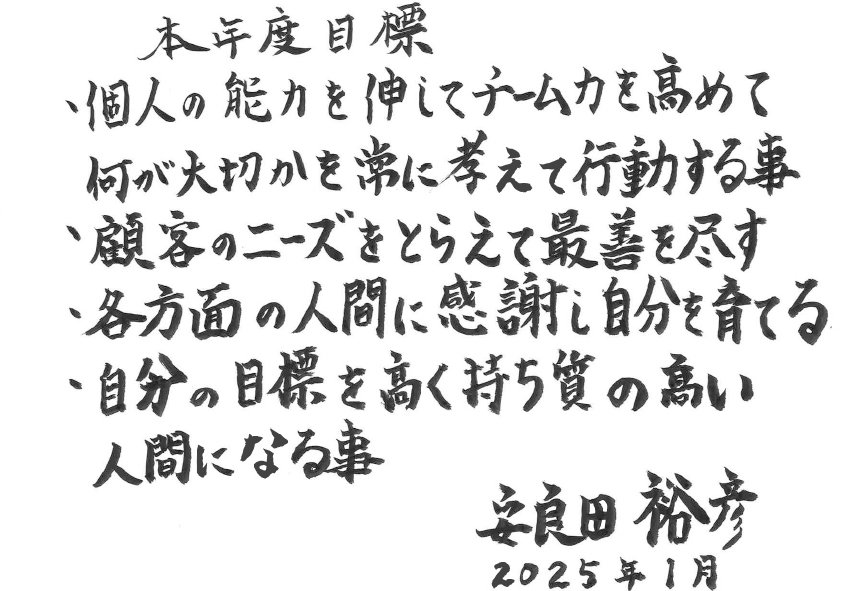 本年度目標
・個人の能力を伸してチーム力を高めて
何が大切かを常に考えて行動する事
・顧客のニーズをとらえて最善を尽す
・各方面の人間に感謝し自分を育てる
・自分の目標を高く持ち質の高い
人間になる事
安良田 裕彦
2025年1月